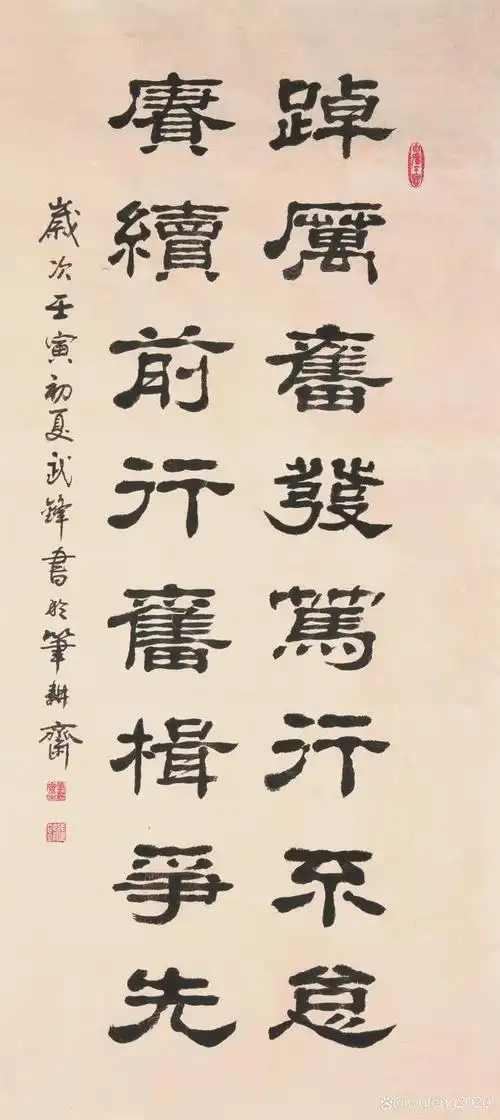 踔厲奮發篤行不怠
賡續前行奮楫爭先
歲次壬寅初夏武鋒書於筆耕齋
@wufeng2020